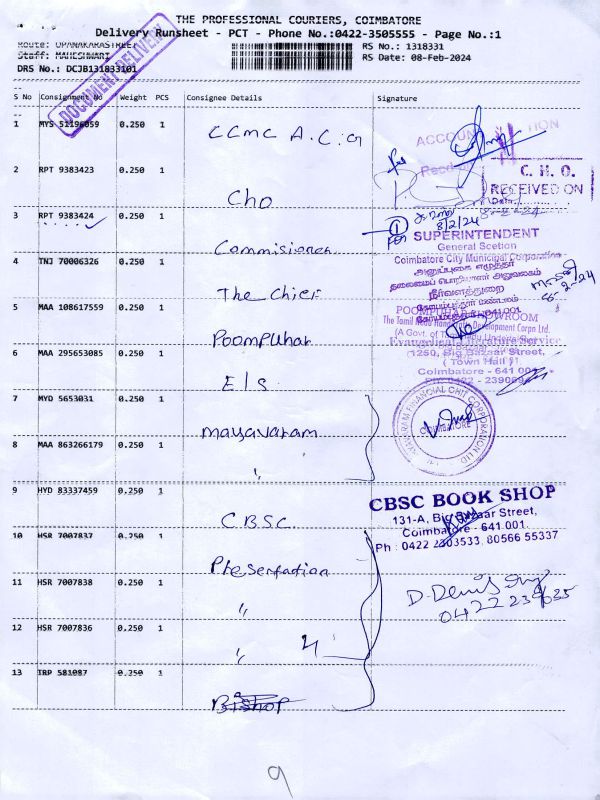 THE PROFESSIONAL COURIERS, COIMBATORE
Delivery Runsheet - PCT - Phone No.:0422-3505555 - Page No.:1
Route: UPANAKARASTREET
Staff: MAHESHWARI
DRS No.: DCJB131833101
RS No.: 1318331
RS Date: 08-Feb-2024
DOCUMENT DELIVERY
S No Consignment No Weight PCS Consignee Details Signature
1 MYS 51196059 0.250 1 CCMC A.C.G
2 RPT 9383423 0.250 1 Cho
3 RPT 9383424 0.250 1 Commisioner
4 TNJ 70006326 0.250 1 The Chief
5 MAA 108617559 0.250 1 Poompuhar
6 MAA 295653085 0.250 1 E/S
7 MYD 5653031 0.250 1 Mayavaram
8 MAA 863266179 0.250 1 "
9 HYD 83337459 0.250 1 CBSC
10 HSR 7007837 0.250 1 Presentation
11 HSR 7007838 0.250 1 "
12 HSR 7007836 0.250 1 " 4
13 TRP 581087 0.250 1 Bishop
C. H. O.
RECEIVED ON
8/2/24
SUPERINTENDENT
General Scetion
Coimbatore City Municipal Corporation
அனுப்புகை எழுத்தர்
தலைமைப் பொறியாளர் அலுவலகம்
நீர்வளத்துறை
கோயம்புத்தூர் மண்டலம்
POOMPUHAR SHOWROOM
(A Govt. of
1250, Big Bazaar Street,
( Town Hall )
Coimbatore - 641 001
COIMBATORE
CBSC BOOK SHOP
131-A, Big Bazaar Street,
Coimbatore - 641 001.
Ph : 0422 2303533, 80566 55337
9